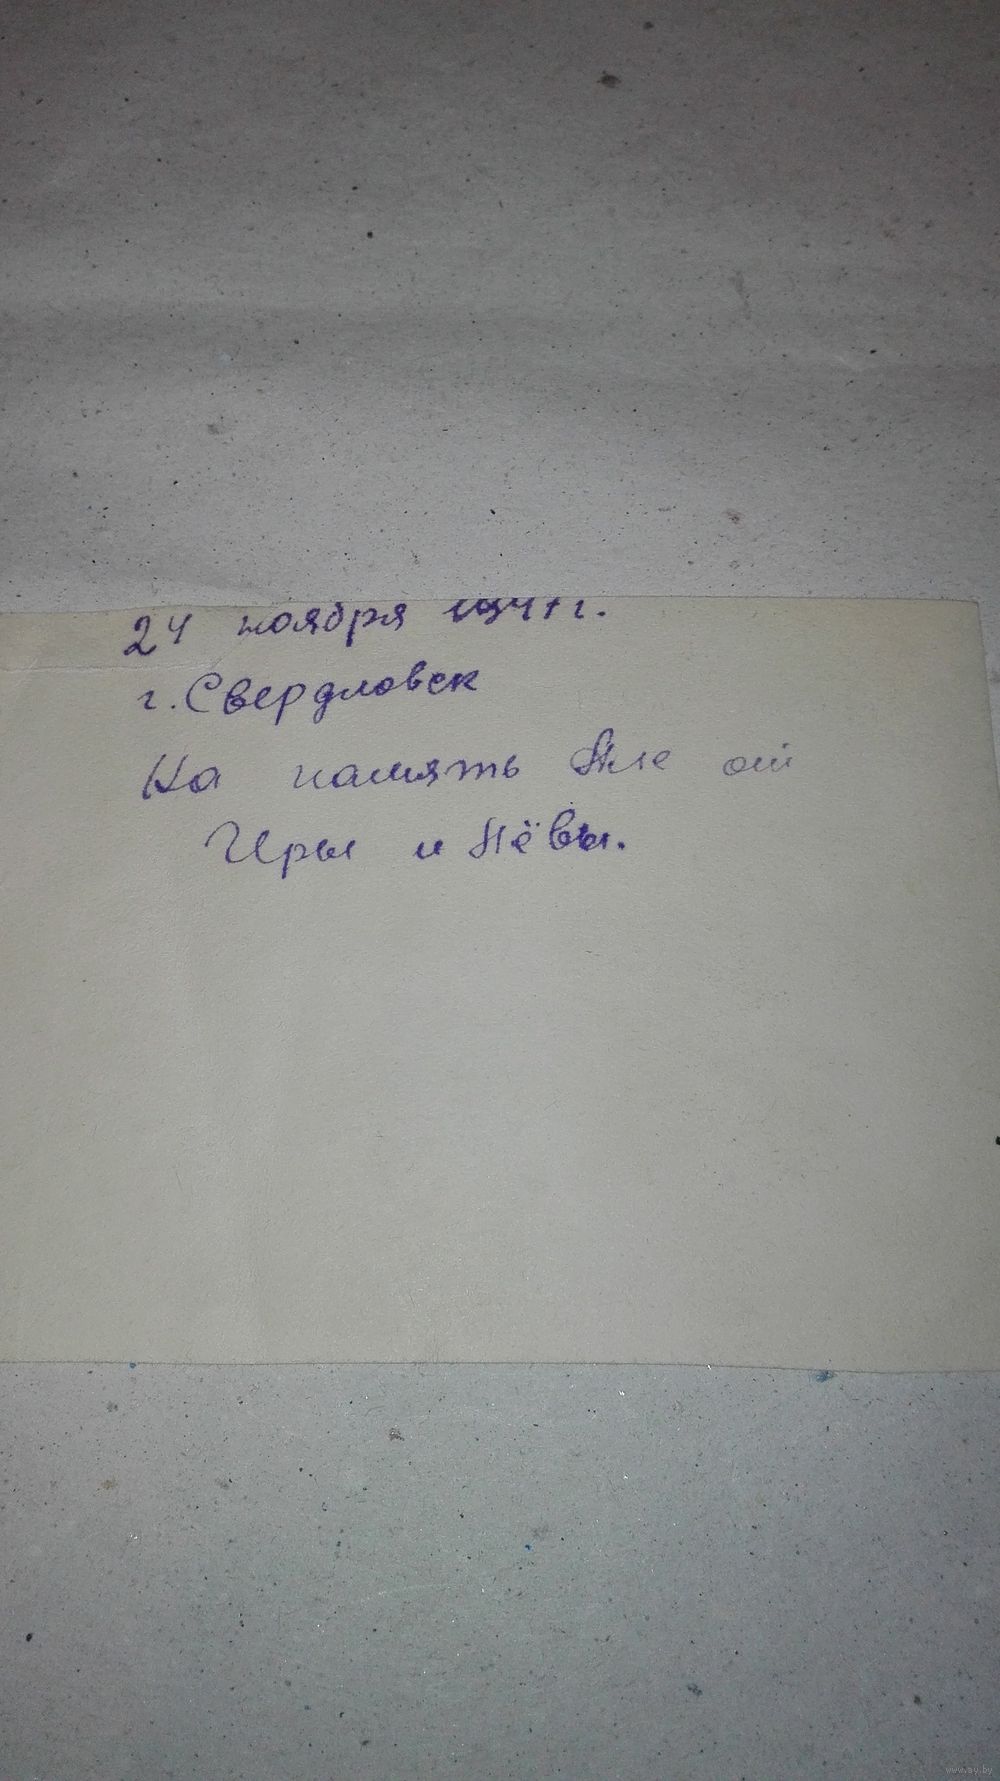 24 ноября 1947г.
г. Свердловск
На память Але от
Иры и Лёвы.
www.ay.by